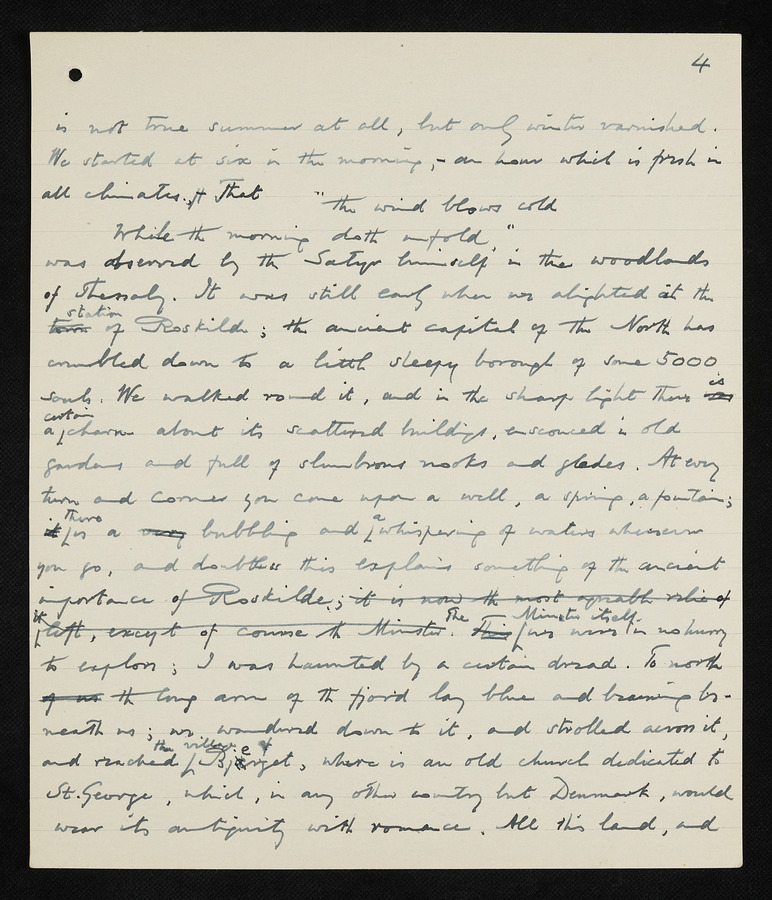 4
is not true summer at all, but only winter varnished.
We started at six in the morning, - an hour which is fresh in
all climates. That "the wind blows cold
While the morning doth unfold,"
was observed by the Satyr himself in the woodlands
of Thessaly. It was still early when we alighted at the
station
town of Roskilde; the ancient capital of the North has
crumbled down to a little sleepy borough of some 5000
souls. We walked round it, and in the sharp light there was
is
certain
a charm about its scattered buildings, ensconced in old
gardens and full of slumbrous nooks and glades. At every
turn and corner you come upon a well, a spring, a fountain;
there a
it is a very bubbling and whispering of waters wheresoever
you go, and doubtless this explains something of the ancient
importance of Roskilde; it is now the most agreable relic of
it The Minster itself
left, except of course the Minster. This we were in no hurry
to explore; I was haunted by a certain dread. To north
of us the long arm of the fjord lay blue and beaming be-
neath us; we wandered down to it, and strolled across it,
the village of
and reached Bjerget, where is an old church dedicated to
St. George, which, in any other country but Denmark, would
wear its antiquity with romance. All this land, and